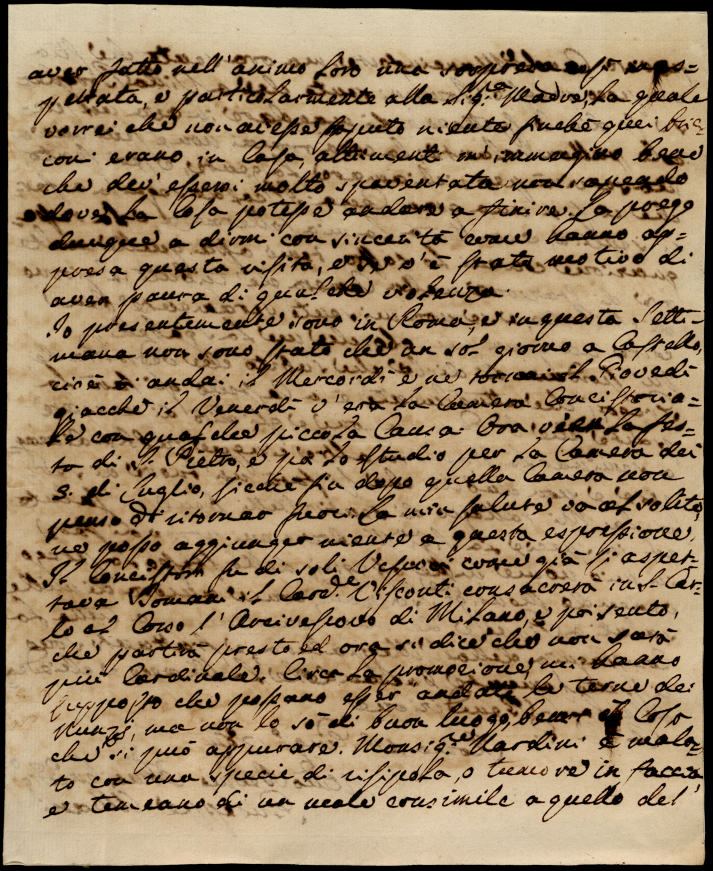 aver fatto nell'animo loro una sorpresa così inas=
pettata, e particolarmente alla Sig.ª Madre, la quale
vorrei che non avesse saputo niente finchè quei bric=
coni erano in Casa, altrimenti m'immagino bene
che dev'essersi molto spaventata non sapendo
dove la Cosa potesse andare a finire. La prego
dunque a dirmi con sincerità come hanno ap=
presa questa visita, e se v'è stato motivo di
aver paura di qualche violenza.
Io presentemente sono in Roma, e in questa Setti=
mana non sono stato che un sol giorno a Castello,
cioè vi andai il Mercordì e ne tornai il Giovedì
giacchè il Venerdì v'era la Camera Concistoria=
le con qualche piccola Causa. Ora viene la fes=
ta di S. Pietro, e poi lo studio per la Camera dei
3. di Luglio, sicchè fin dopo quella Camera non
penso di ritornar fuori. La mia salute va al solito,
ne posso aggiunger niente a questa espressione.
Il Concistoro fu di soli Vescovi come già si aspet=
tava. Domani il Card.e Visconti consacrerà in S. Car=
lo al Corso l'Arcivescovo di Milano, e poi sento,
che partirà presto ed ora si dice che non sarà
più Cardinale. Circa la promozione, mi hanno
supposto che possano esser andate le terne dei
Nunzj, ma non lo sò di buon luogo, benchè Cosa
che si può appurare. Monsig.re Nardini è mala=
to con una specie di risipola, o tumore in faccia
e temeano di un male consimile a quello del'